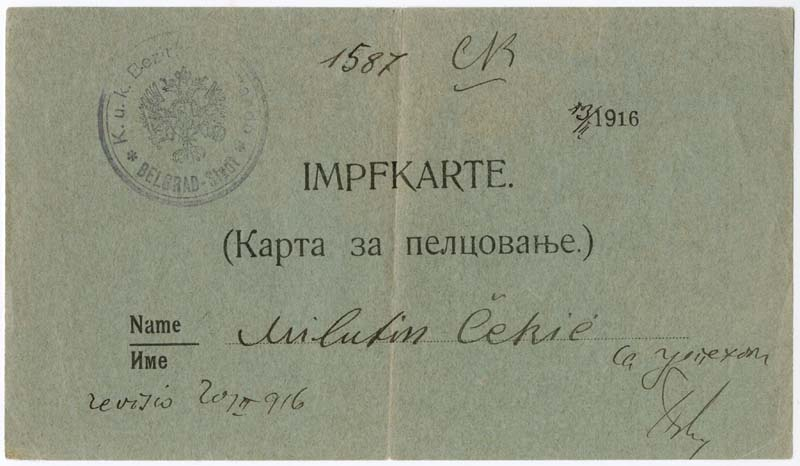 1587 CK
K. u. k. Bez
BELGRAD-Stadt
13/II 1916
IMPFKARTE.
(Карта за пелцовање.)
Name Milutin Čekić
Име
са успехом
revisio 20/II 916